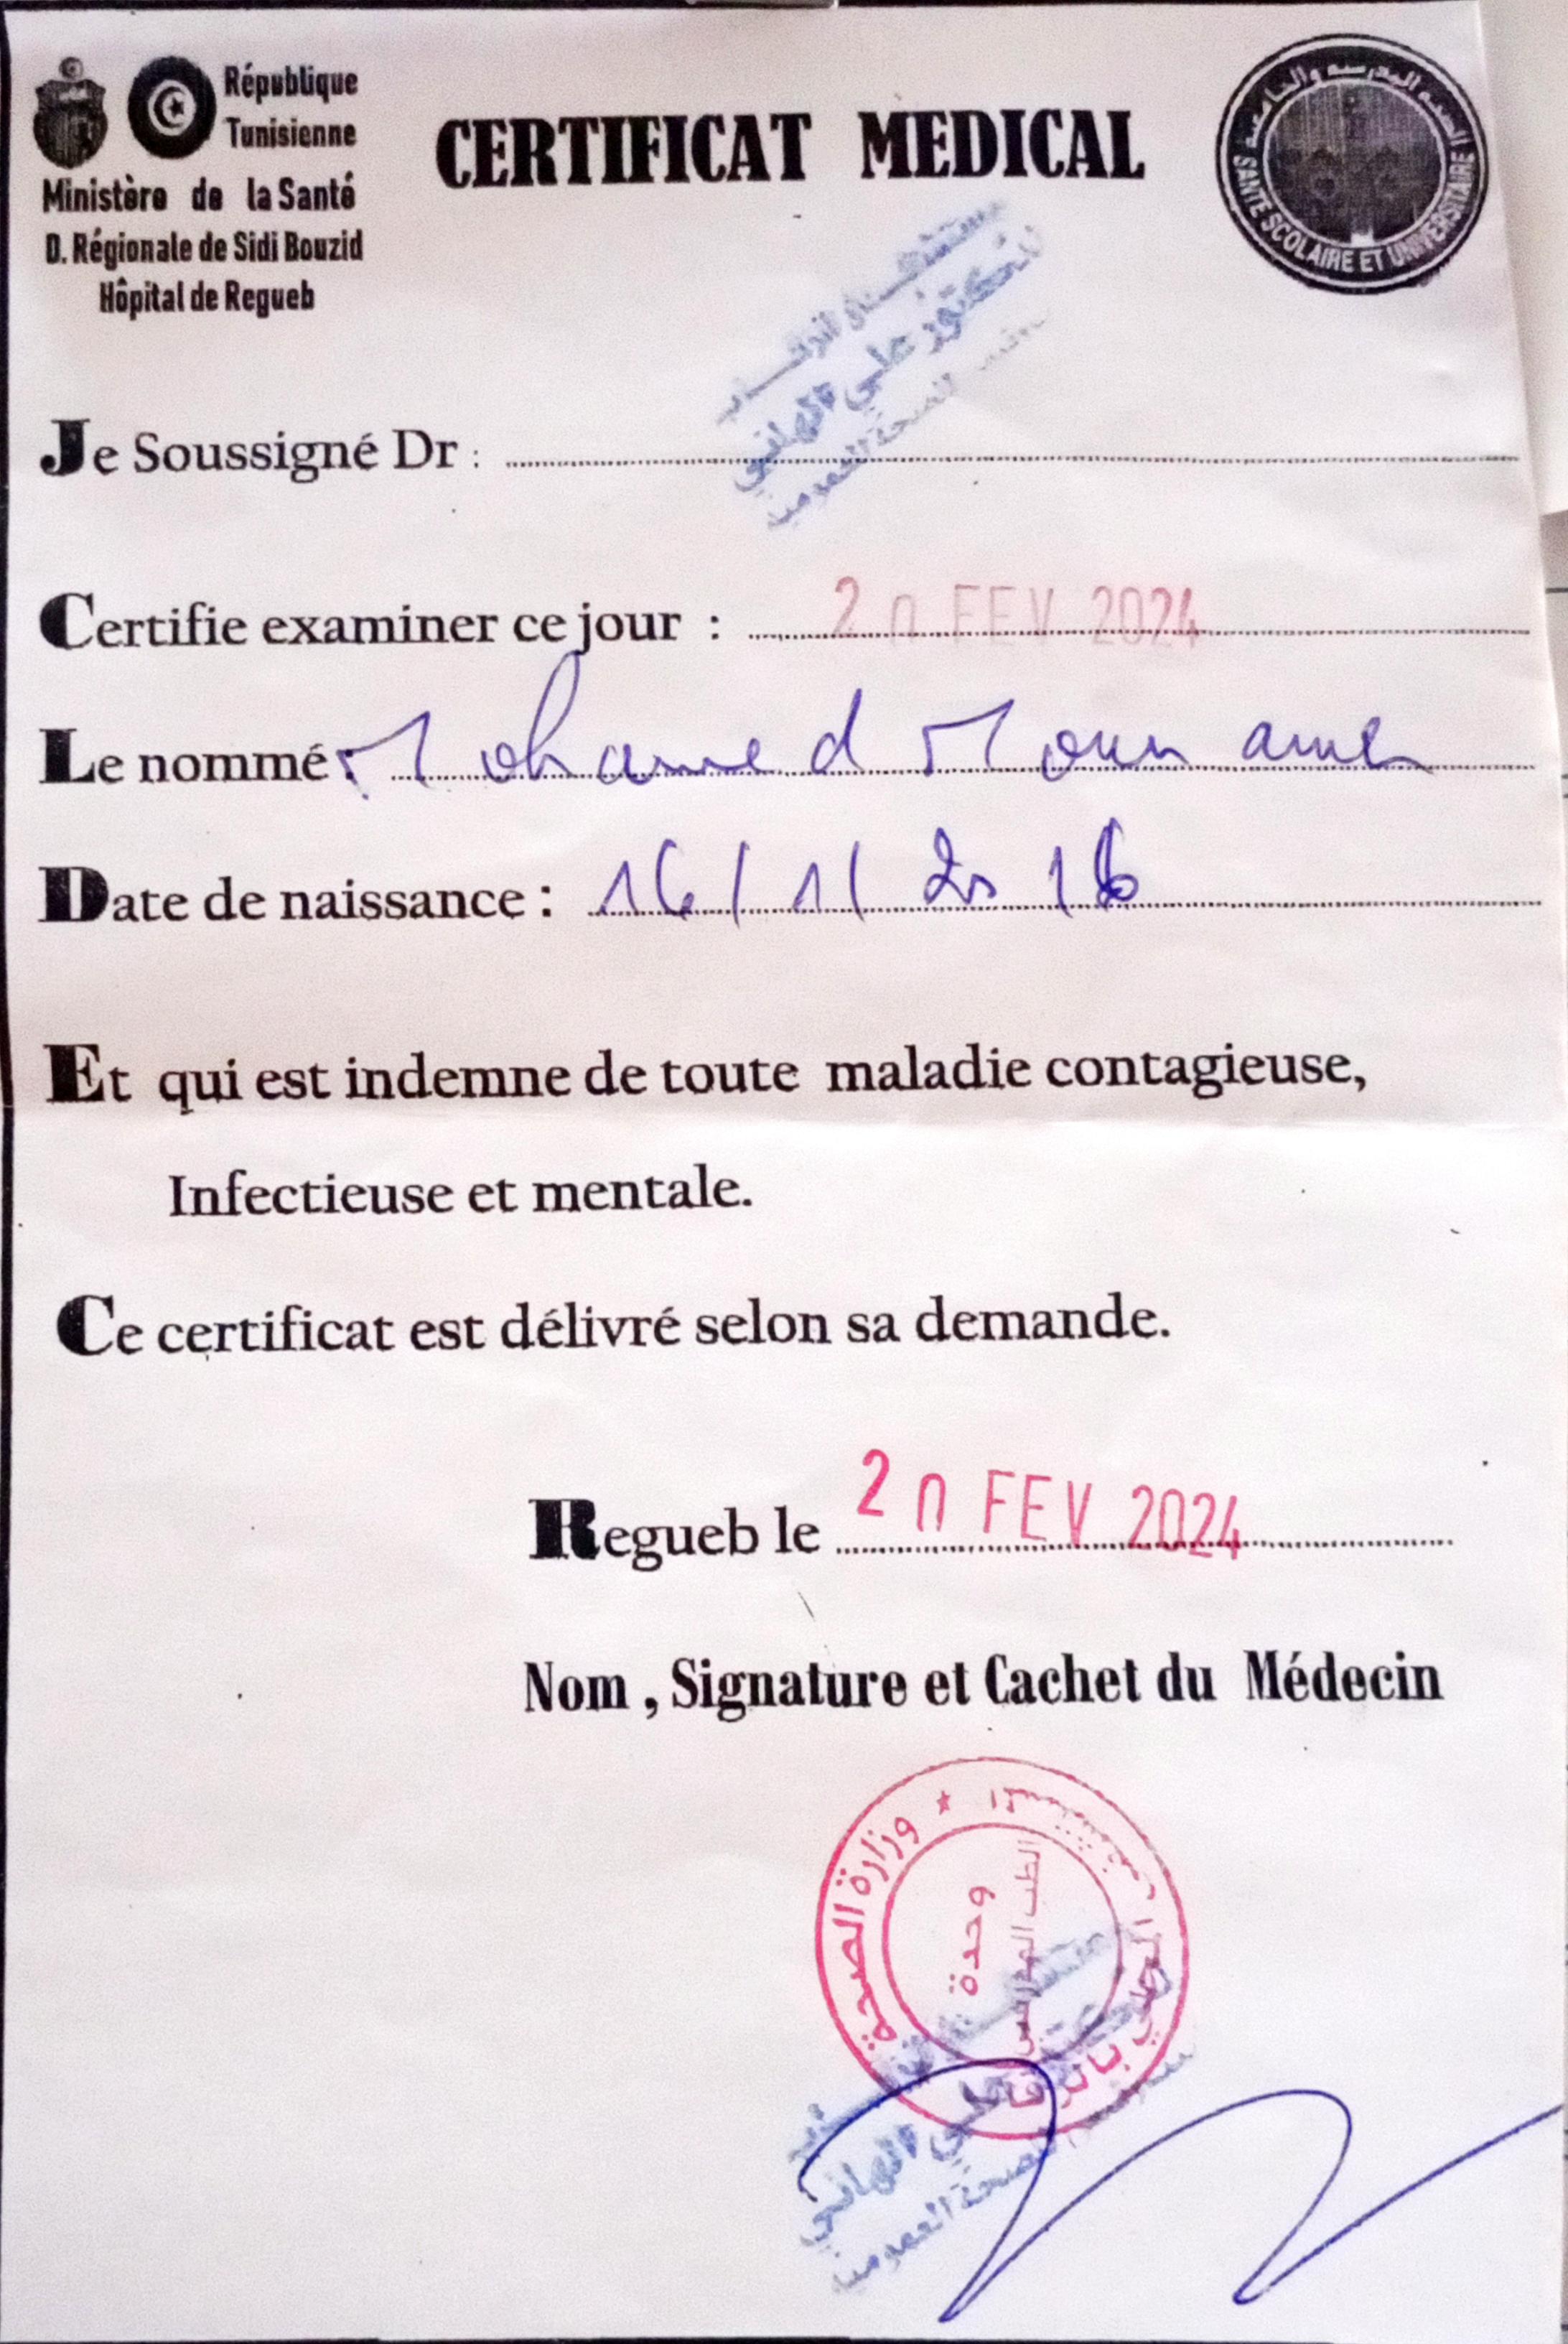 République
Tunisienne
Ministère de la Santé
D. Régionale de Sidi Bouzid
Hôpital de Regueb
CERTIFICAT MEDICAL
SANTE SCOLAIRE ET UNIVERSITAIRE
الدكتور علي الهانبي
الصحة العمومية
Je Soussigné Dr :
Certifie examiner ce jour : 20 FEV 2024
Le nommé : Mohamed
Date de naissance : 16/11/2016
Et qui est indemne de toute maladie contagieuse,
Infectieuse et mentale.
Ce certificat est délivré selon sa demande.
Regueb le 20 FEV 2024
Nom , Signature et Cachet du Médecin
وزارة الصحة
وحدة
الطب المدرسي
علي الهانبي
الصحة العمومية